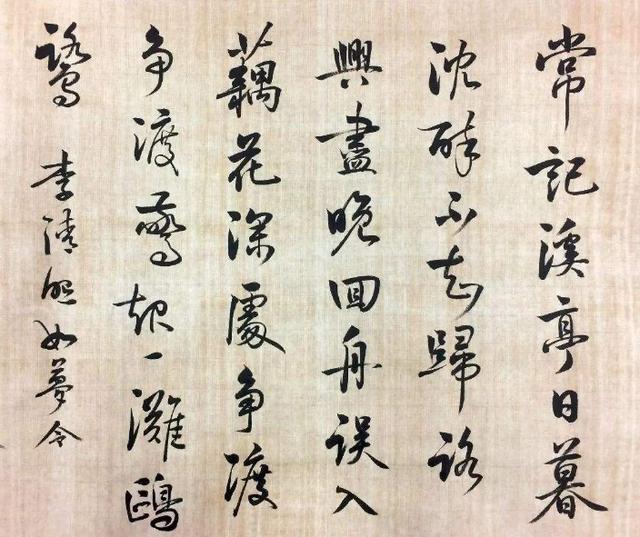 常記溪亭日暮
沈醉不知歸路
興盡晚回舟誤入
藕花深處爭渡
爭渡驚起一灘鷗
鷺 李清照如夢令